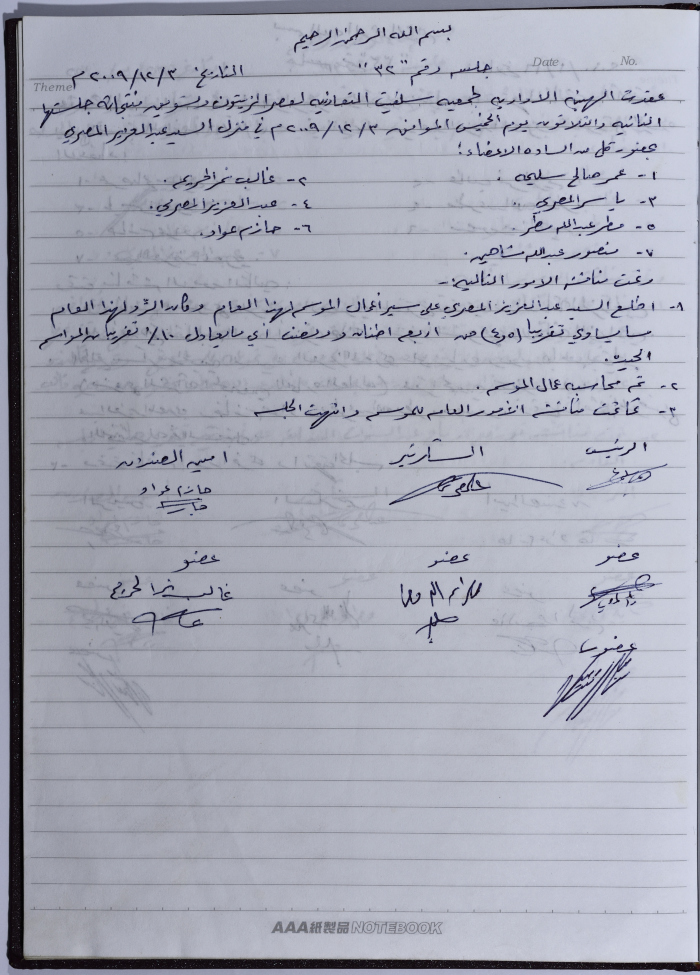 بسم الله الرحمن الرحيم
جلسه رقم "٣٢" التاريخ: ٢٠٠٩/١٢/٣م
Date No.
Theme
عقدت الهيئة الاداريه لجمعيه سلفيت التعاونيه لعصر الزيتون وتسويق منتجاته جلستها
الثانيه والثلاثون يوم الخميس الموافق ٢٠٠٩/١٢/٣م في منزل السيد عبد العزيز المصري
بحضور كل من الساده الاعضاء:
١- عمر صالح سليمه. ٢- غالب نمر الحريمه.
٣- ياسر المصري. ٤- عبد العزيز المصري.
٥- مطر عبد الله مطر. ٦- حازم عواد.
٧- منصور عبد الله شاهين.
وتمت مناقشه الامور التاليه:-
١- اطلع السيد عبد العزيز المصري على سير أعمال الموسم لهذا العام وكان الرد لهذا العام
ما يساوي تقريبا (٤,٥) من اربعه اطنان ونصف أي ما يعادل ١٠٪ تقريبا من المواسم
الجيده.
٢- تم محاسبه عمال الموسم.
٣- كما تمت مناقشه الأمور العامه للموسم وانتهت الجلسه
الرئيس السكرتير امين الصندوق
حازم عواد
عضو عضو عضو
غالب نمر الحريمه
عضو
AAA紙製品 NOTEBOOK